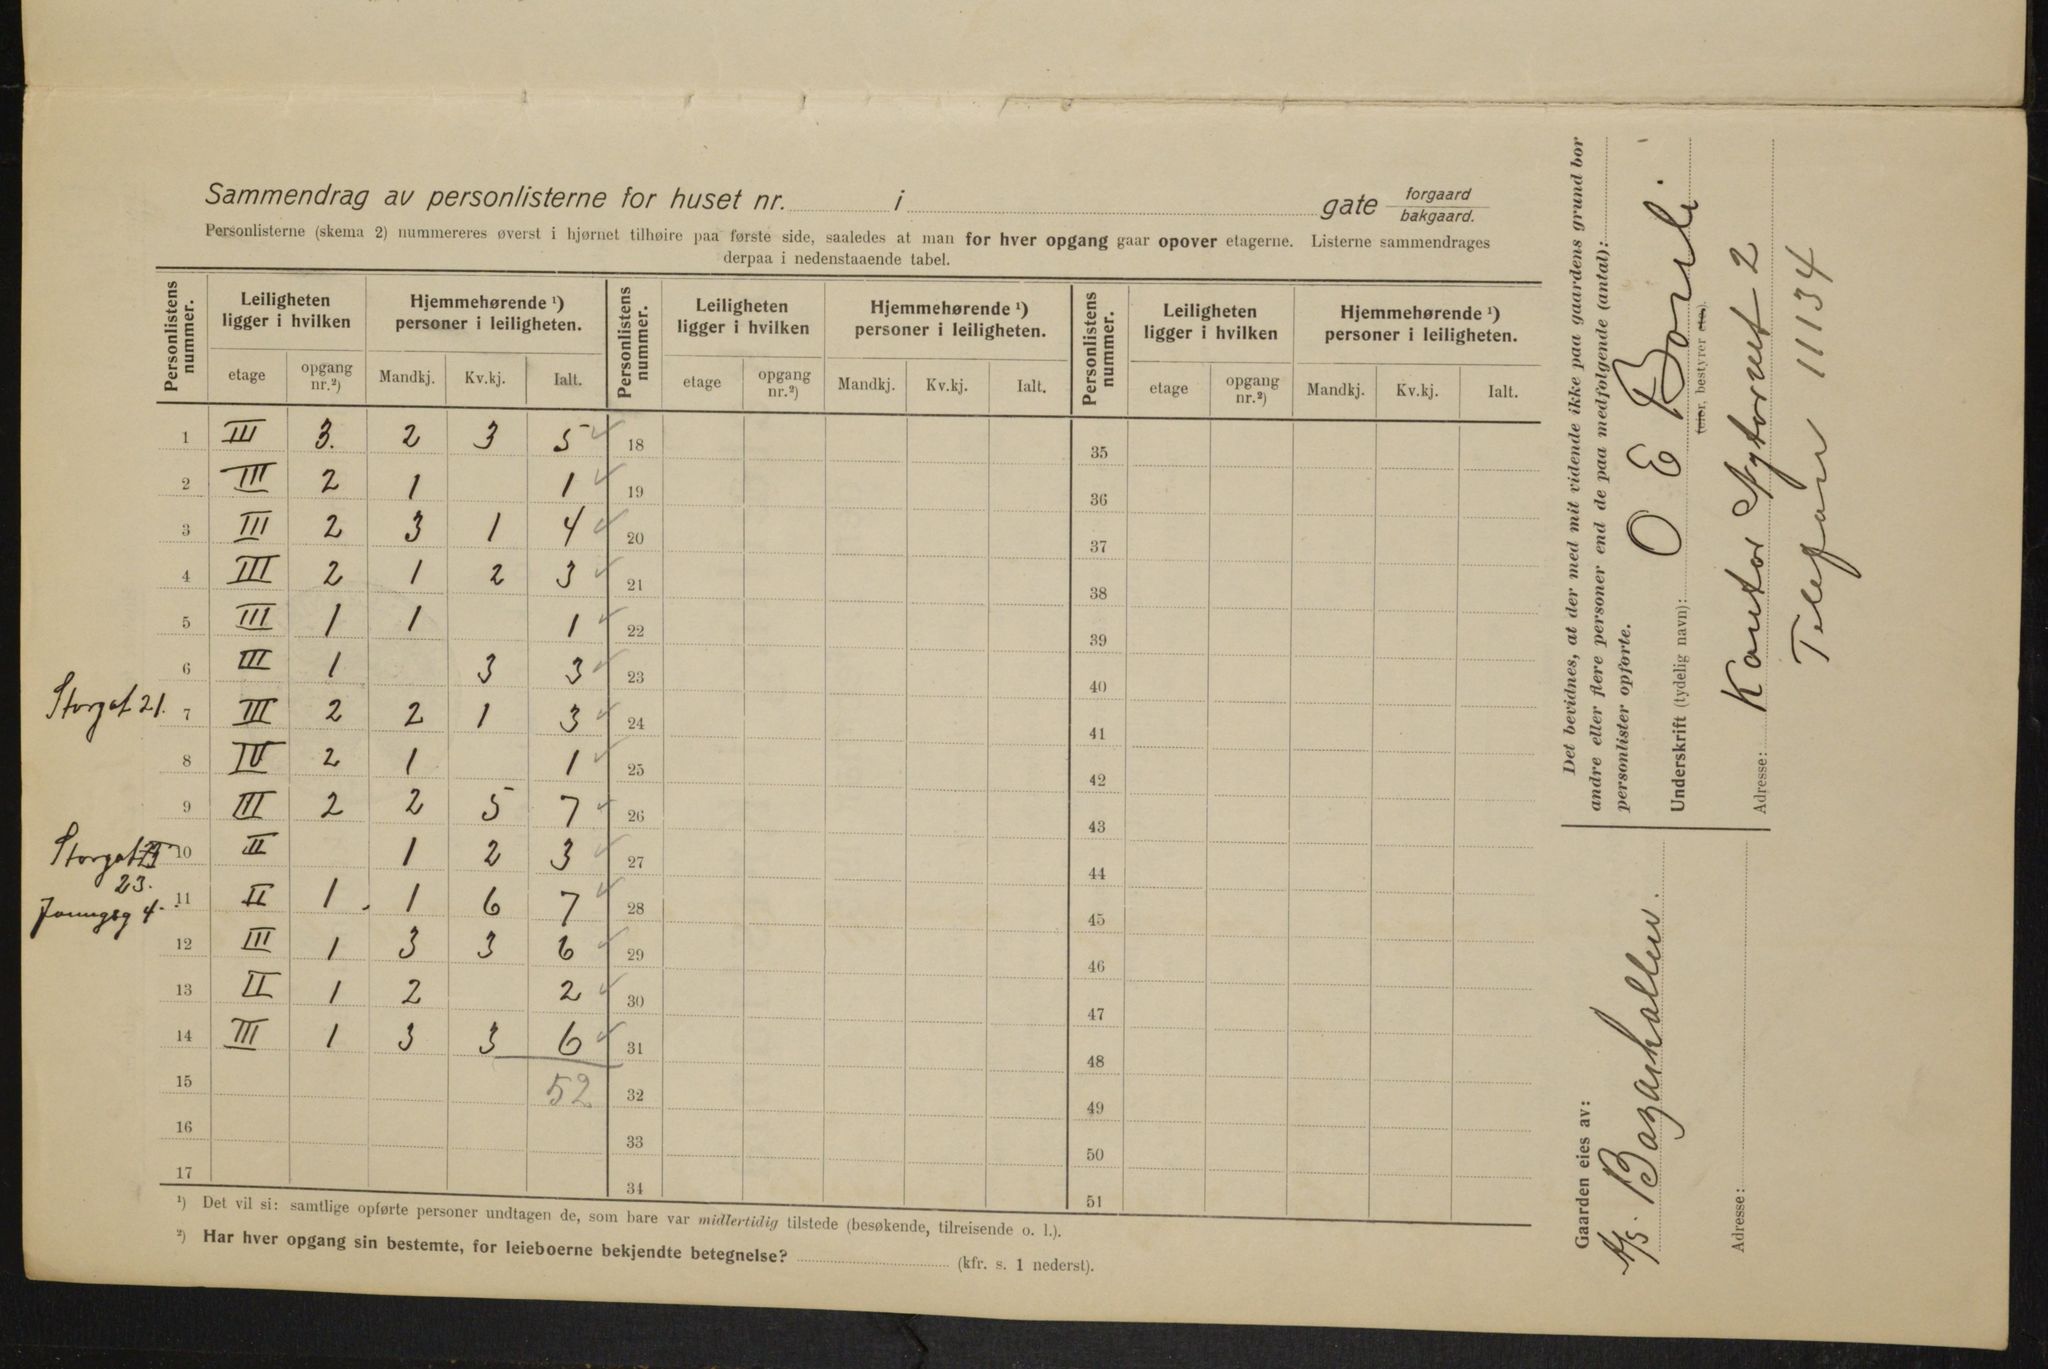 Sammendrag av personlisterne for huset nr. i gate forgaard bakgaard.
Personlisterne (skema 2) nummereres øverst i hjørnet tilhøire paa første side, saaledes at man for hver opgang gaar opover etagerne. Listerne sammendrages
derpaa i nedenstaaende tabel.
Personlistens nummer. Leiligheten ligger i hvilken Hjemmehørende ¹) personer i leiligheten. Personlistens nummer. Leiligheten ligger i hvilken Hjemmehørende ¹) personer i leiligheten. Personlistens nummer. Leiligheten ligger i hvilken Hjemmehørende ¹) personer i leiligheten.
etage opgang nr.²) Mandkj. Kv.kj. Ialt. etage opgang nr.²) Mandkj. Kv.kj. Ialt. etage opgang nr.²) Mandkj. Kv.kj. Ialt.
1 III 3. 2 3 5 18 35
2 III 2 1 1 19 36
3 III 2 3 1 4 20 37
4 III 2 1 2 3 21 38
5 III 1 1 1 22 39
6 III 1 3 3 23 40
Storgat 21. 7 III 2 2 1 3 24 41
8 IV 2 1 1 25 42
9 III 2 2 5 7 26 43
Storgat 10 II 1 2 3 27 44
23.
Jonungsg 4. 11 II 1 1 6 7 28 45
12 III 1 3 3 6 29 46
13 II 1 2 2 30 47
14 III 1 3 3 6 31 48
15 52 32 49
16 33 50
17 34 51
¹) Det vil si: samtlige opførte personer undtagen de, som bare var midlertidig tilstede (besøkende, tilreisende o. l.).
²) Har hver opgang sin bestemte, for leieboerne bekjendte betegnelse? (kfr. s. 1 nederst).
Det bevidnes, at der med mit vidende ikke paa gaardens grund bor
andre eller flere personer end de paa medfølgende (antal):
personlister opførte.
Underskrift (tydelig navn): O E Borli.
(eier, bestyrer etc.)
Adresse: Kontor Nytorvet 2
Telefon 11134
Gaarden eies av:
A/S. Bazarhallen.
Adresse: